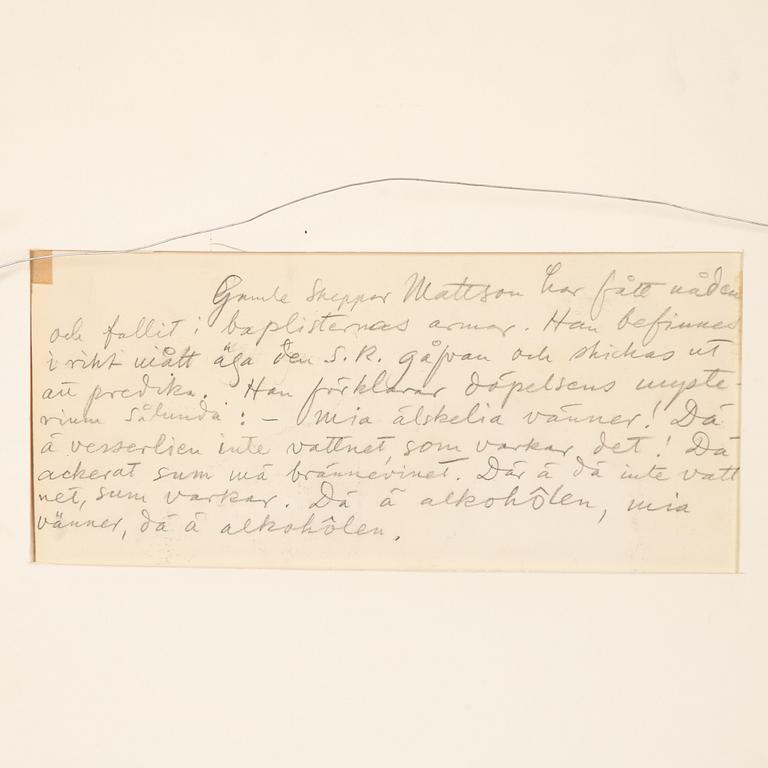 Gamle Skeppar Mattson har fått nåden
och fallit i baptisternas armar. Han befinnes
i rikt mått äga den s.k. gåfvan och skickas ut
att predika. Han förklarar döpelsens myste-
rium sålunda: – Mia älskelia vänner! Dä
ä vesserlien inte vattnet, som varkar det! Dä
ackerat sum mä brännevinet. Där ä dä inte vatt
net, sum varkar. Dä ä alkohôlen, mia
vänner, dä ä alkohôlen.